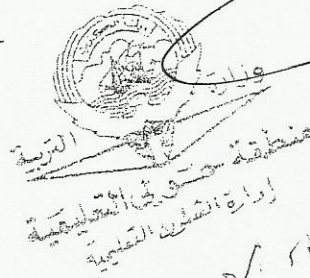 دولة الكويت
وزارة التربية
منطقة حولي التعليمية
إدارة الشئون التعليمية